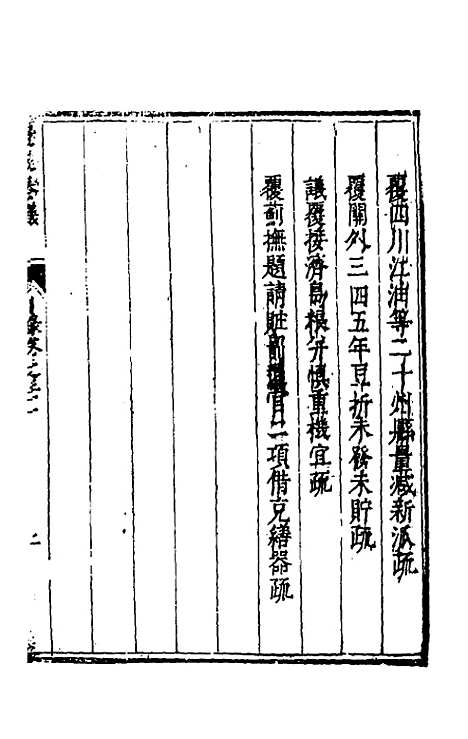 覆四川江油等二十州縣量减新派疏
覆關外三四五年豆折未發未貯疏
議覆接濟島根并慎重機宜疏
覆薊撫題請賍罰 官二項借充繕器疏
二